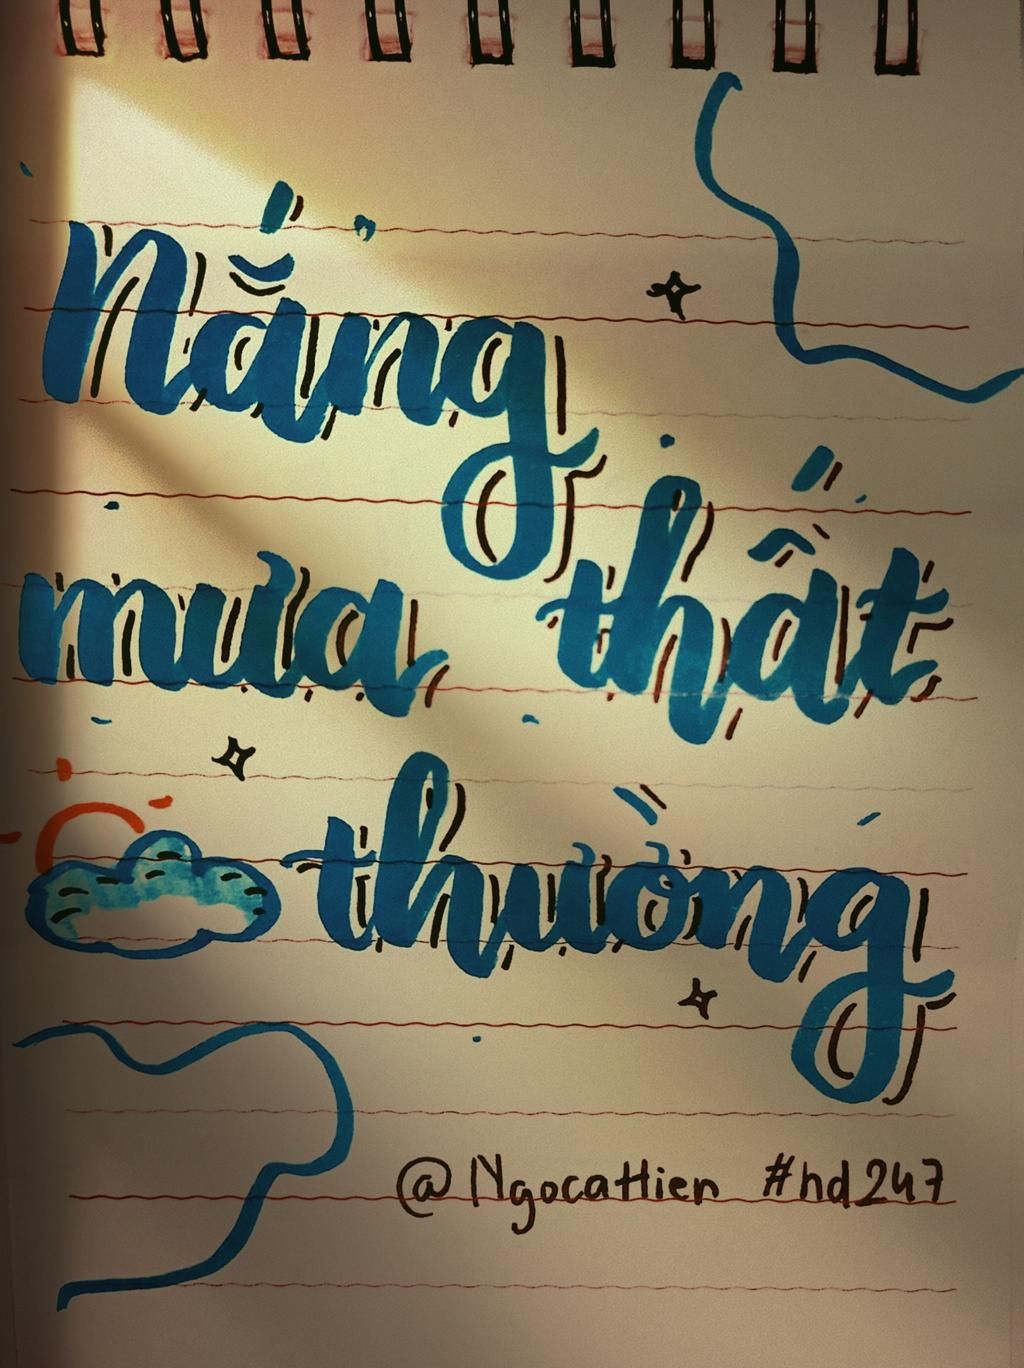 Nắng
mưa thất
thường
@NgocaHien #hd247